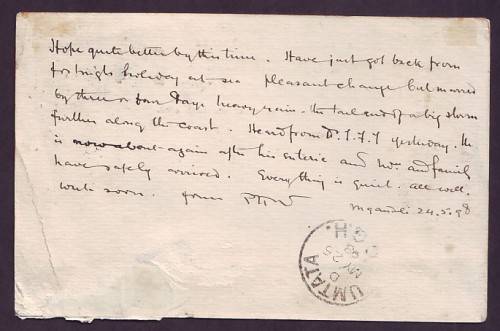 Hope quite better by this time. Have just got back from
fortnight's holiday at sea. Pleasant change but marred
by three or four days heavy rain - the tail end of a big storm
further along the coast. Heard from yesterday. He
is now about again after his enteric and and family
have safely arrived. Everything is quiet. all well.
write soon. from
24.5.98
G.H.
MY 25
98
D
UMTATA